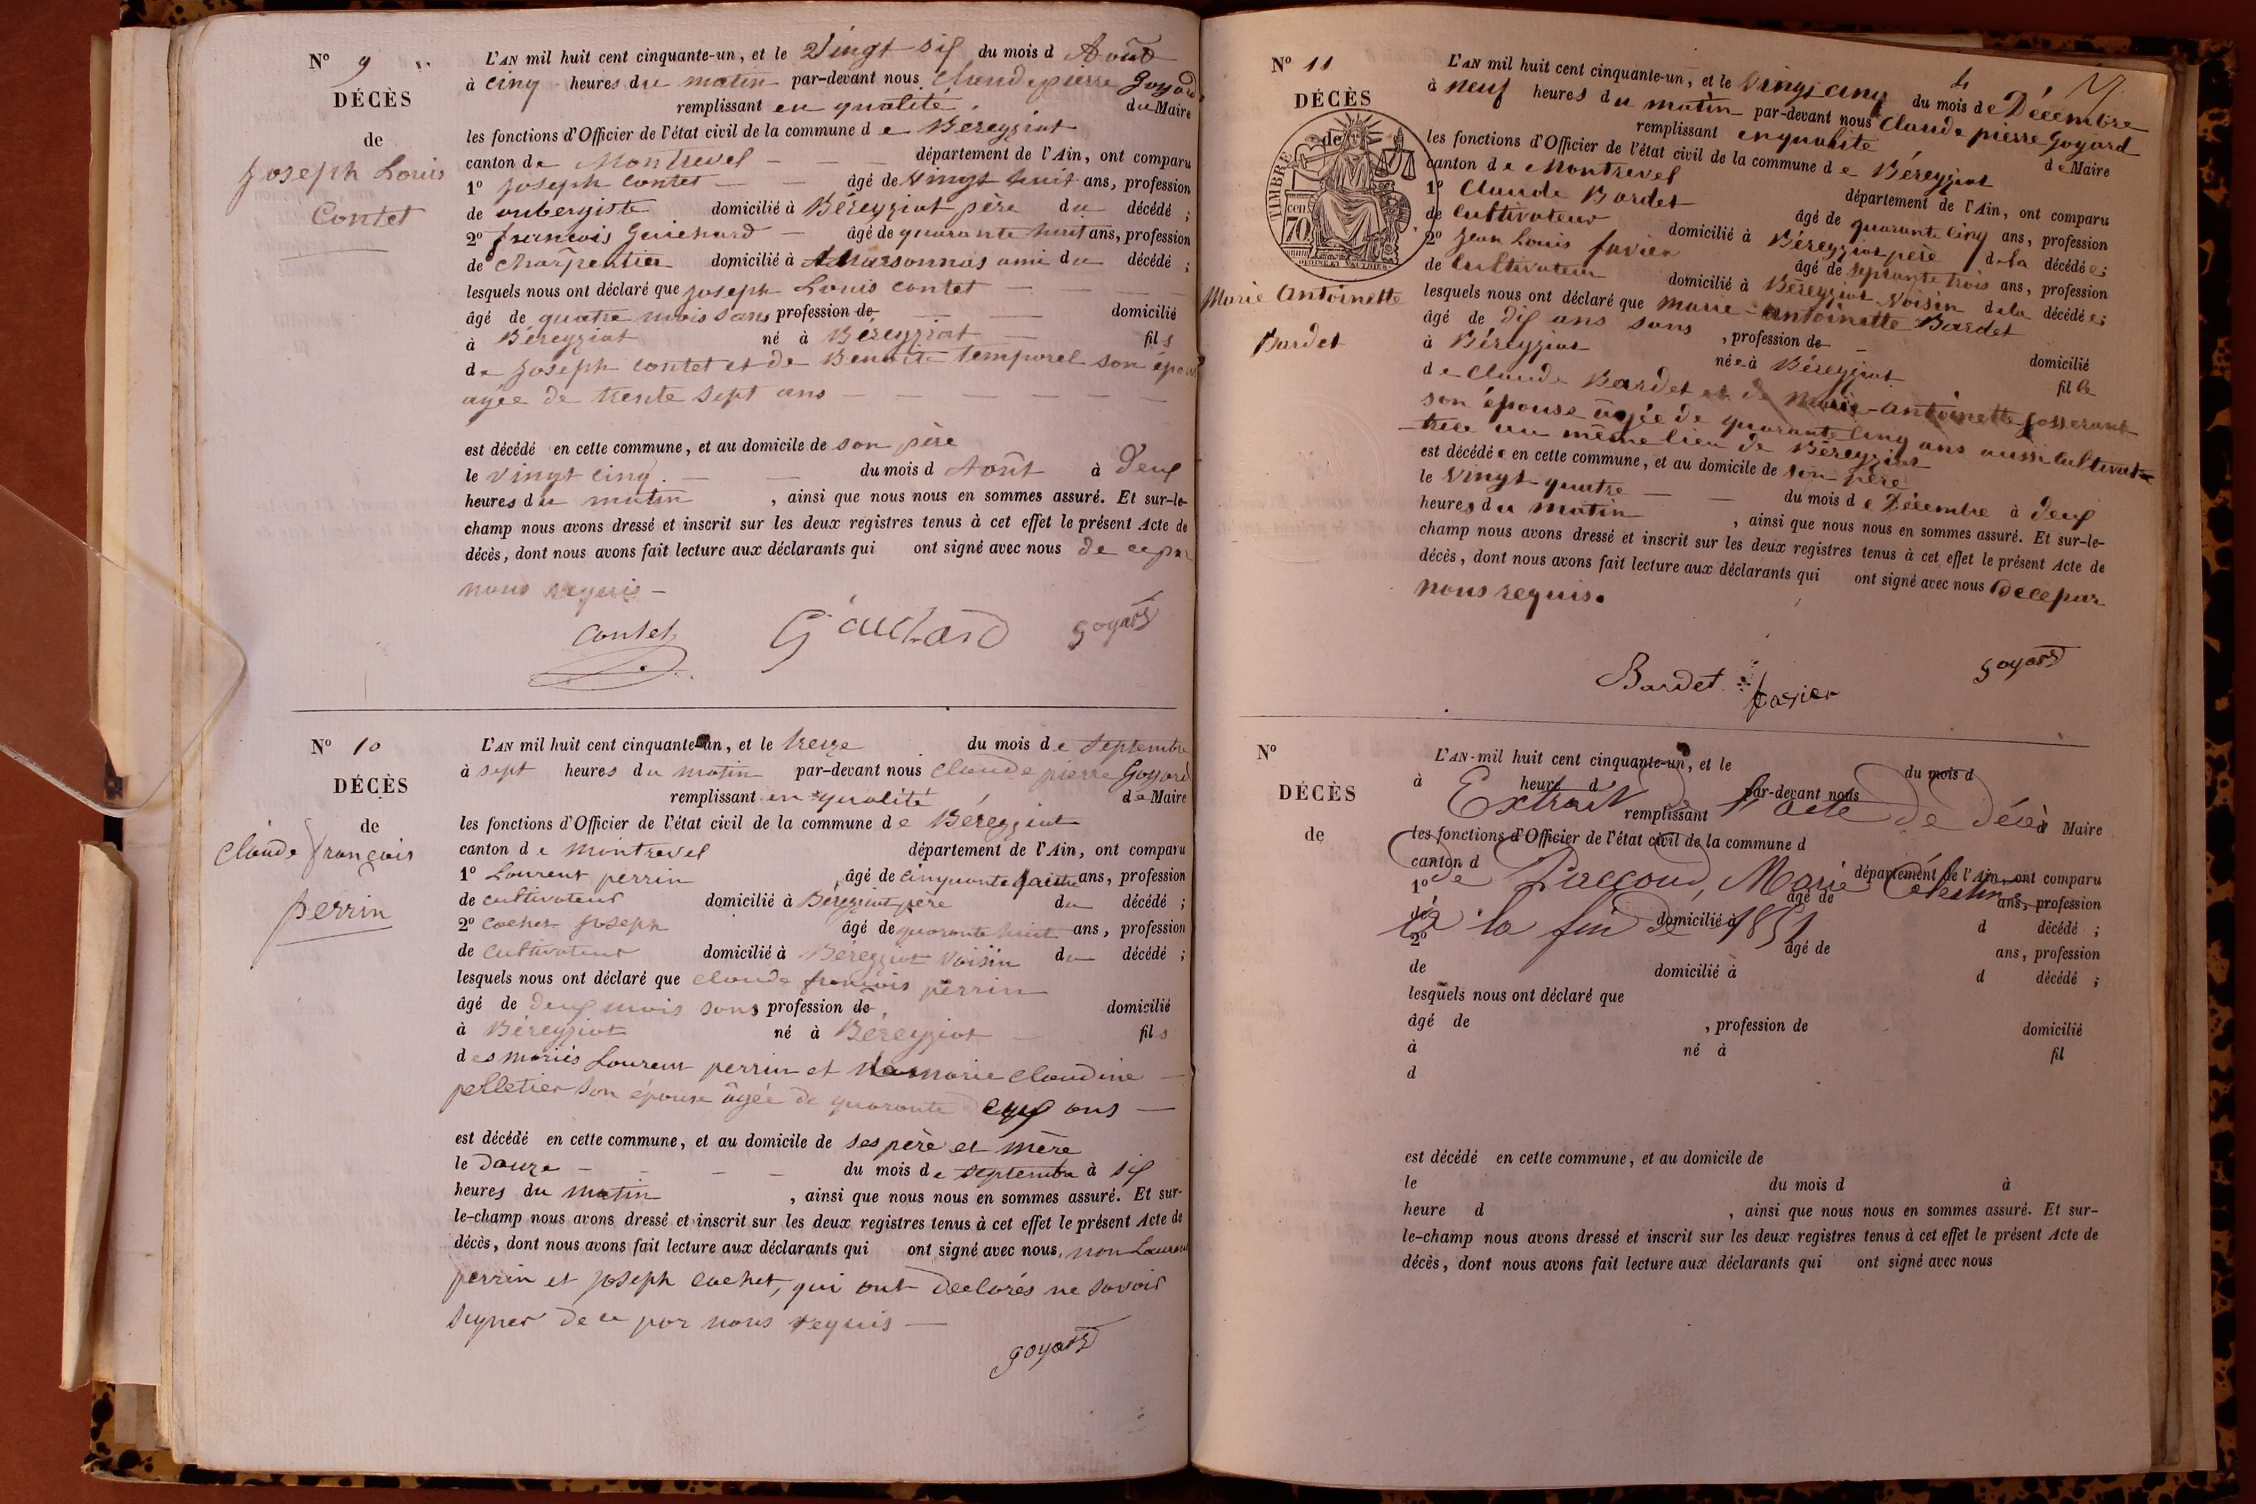 N° 9
DÉCÈS
de
Joseph Louis
Contet
L'AN mil huit cent cinquante-un, et le Vingt six du mois d Août
à cinq heures du matin par-devant nous Claude pierre Goyard
remplissant en qualité du Maire
les fonctions d'Officier de l'état civil de la commune de Bereyziat
canton de Montrevel département de l'Ain, ont comparu
1° Joseph Contet âgé de vingt huit ans, profession
de aubergiste domicilié à Béreyziat père du décédé ;
2° françois Guichard âgé de quarante huit ans, profession
de Charpentier domicilié à Marsonnas ami du décédé ;
lesquels nous ont déclaré que Joseph Louis Contet
âgé de quatre mois sans profession de domicilié
à Béreyziat né à Béreyziat fils
de Joseph Contet et de Benoite Temporel son épouse
agée de trente sept ans
est décédé en cette commune, et au domicile de son père
le vingt cinq du mois d Août à deux
heures du matin, ainsi que nous nous en sommes assuré. Et sur-le-
champ nous avons dressé et inscrit sur les deux registres tenus à cet effet le présent Acte de
décès, dont nous avons fait lecture aux déclarants qui ont signé avec nous de ce par
nous requis
Contet Guichard Goyard
N° 10
DÉCÈS
de
Claude françois
perrin
L'AN mil huit cent cinquante-un, et le treize du mois de Septembre
à sept heures du matin par-devant nous Claude pierre Goyard
remplissant en qualité de Maire
les fonctions d'Officier de l'état civil de la commune de Béreyziat
canton de Montrevel département de l'Ain, ont comparu
1° Laurent perrin âgé de cinquante ans, profession
de cultivateur domicilié à Béreyziat père du décédé ;
2° Cochet Joseph âgé de quarante huit ans, profession
de Cultivateur domicilié à Béreyziat Voisin du décédé ;
lesquels nous ont déclaré que Claude françois perrin
âgé de deux mois sans profession de domicilié
à Béreyziat né à Béreyziat fils
des mariés Laurent perrin et Marie Claudine
pelletier son épouse âgée de quarante deux ans
est décédé en cette commune, et au domicile de ses père et mère
le douze du mois de septembre à six
heures du matin, ainsi que nous nous en sommes assuré. Et sur-
le-champ nous avons dressé et inscrit sur les deux registres tenus à cet effet le présent Acte de
décès, dont nous avons fait lecture aux déclarants qui ont signé avec nous, non Laurent
perrin et Joseph Cochet, qui ont déclarés ne savoir
signer de ce par nous requis
Goyard
N° 11
DÉCÈS
de
TIMBRE
cen
70
Marie Antoinette
Bardet
L'AN mil huit cent cinquante-un, et le Vingt cinq du mois de Décembre
à neuf heures du matin par-devant nous Claude pierre Goyard
remplissant en qualité de Maire
les fonctions d'Officier de l'état civil de la commune de Béreyziat
canton de Montrevel département de l'Ain, ont comparu
1° Claude Bardet âgé de quarante cinq ans, profession
de Cultivateur domicilié à Béreyziat père de la décédée ;
2° Jean Louis favier âgé de septante trois ans, profession
de Cultivateur domicilié à Béreyziat Voisin de la décédée ;
lesquels nous ont déclaré que Marie-Antoinette Bardet
âgé de dix ans sans, profession de domicilié
à Béreyziat née à Béreyziat fille
de Claude Bardet et de Marie-Antoinette Josserant
son épouse âgée de quarante cinq ans aussi cultiva-
trice au même lieu de Béreyziat
est décédée en cette commune, et au domicile de son père
le vingt quatre du mois de Décembre à deux
heures du matin, ainsi que nous nous en sommes assuré. Et sur-le-
champ nous avons dressé et inscrit sur les deux registres tenus à cet effet le présent Acte de
décès, dont nous avons fait lecture aux déclarants qui ont signé avec nous de ce par
nous requis.
Bardet favier Goyard
N°
DÉCÈS
de
L'AN mil huit cent cinquante-un, et le du mois d
à heure d par-devant nous
Extrait de l'acte de décès
remplissant d Maire
les fonctions d'Officier de l'état civil de la commune d
canton d département de l'Ain, ont comparu
de Paccoud, Marie Célestine
1° âgé de ans, profession
de domicilié à d décédé ;
à la fin de 1851
2° âgé de ans, profession
de domicilié à d décédé ;
lesquels nous ont déclaré que
âgé de , profession de domicilié
à né à fil
d
est décédé en cette commune, et au domicile de
le du mois d à
heure d , ainsi que nous nous en sommes assuré. Et sur-
le-champ nous avons dressé et inscrit sur les deux registres tenus à cet effet le présent Acte de
décès, dont nous avons fait lecture aux déclarants qui ont signé avec nous